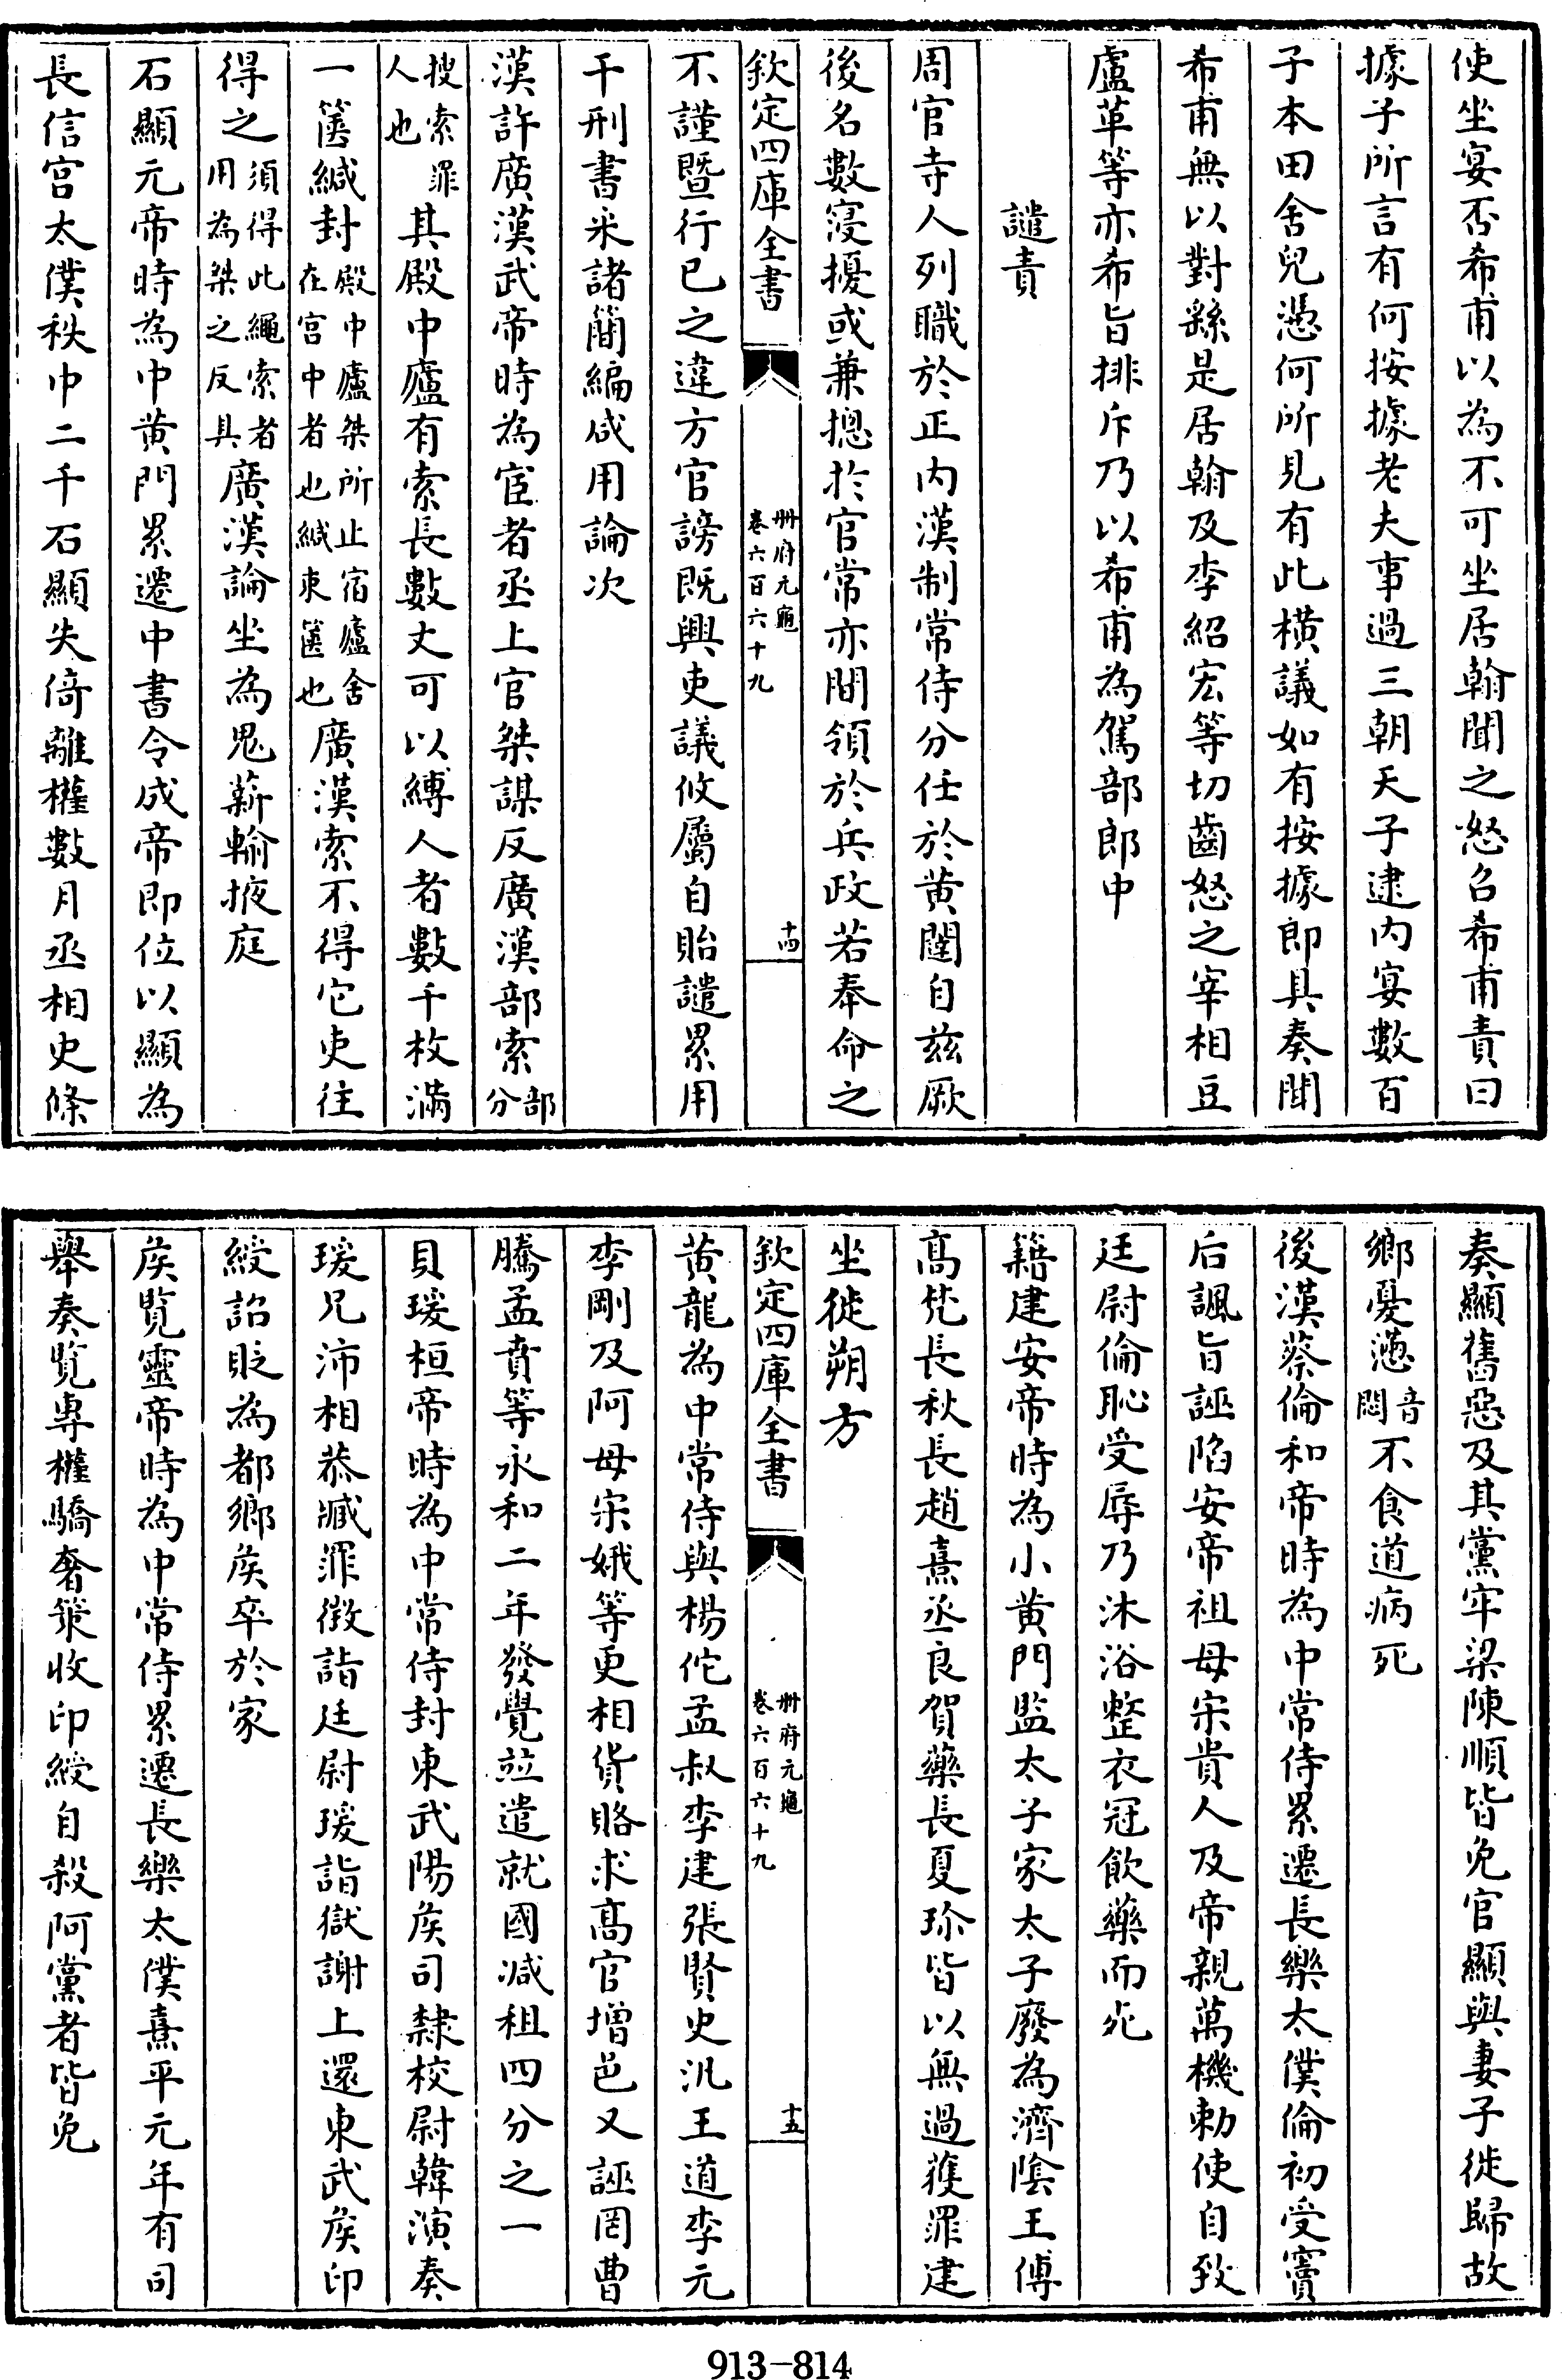 使坐宴否希甫以為不可坐居翰聞之怒召希甫責曰
據子所言有何按據老夫事過三朝天子逮内宴數百
子本田舍兒憑何所見有此橫議如有按據即具奏聞
希甫無以對繇是居翰及李紹宏等切齒怒之宰相豆
盧革等亦希旨排斥乃以希甫為駕部郎中
譴責
周官寺人列職於正内漢制常侍分任於黄闥自兹厥
後名數寖擾或兼摠於官常亦間領於兵政若奉命之
欽定四庫全書
册府元龜
卷六百六十九
十四
不謹暨行已之違方官謗既興吏議攸屬自貽譴累用
干刑書米諸簡編咸用論次
漢許廣漢武帝時為宦者丞上官桀謀反廣漢部索部
分
搜索罪
人也其殿中廬有索長數丈可以縛人者數千枚滿
一篋緘封殿中廬桀所止宿廬舍
在宫中者也緘束篋也廣漢索不得它吏往
得之須得此繩索者
用為桀之反具廣漢論坐為鬼薪輸掖庭
石顯元帝時為中黄門累遷中書令成帝即位以顯為
長信宫太僕秩中二千石顯失倚離權數月丞相史條
奏顯舊惡及其黨牢梁陳順皆免官顯與妻子徙歸故
鄉憂懣音
悶不食道病死
後漢蔡倫和帝時為中常侍累遷長樂太僕倫初受竇
后諷旨誣陷安帝祖母宋貴人及帝親萬機勅使自致
廷尉倫恥受辱乃沐浴整衣冠飲藥而死
籍建安帝時為小黄門監太子家太子廢為濟隂王傅
高梵長秋長趙熹丞良賀藥長夏珍皆以無過獲罪建
坐徙朔方
欽定四庫全書
册府元龜
卷六百六十九
十五
黄龍為中常侍與楊佗孟叔李建張賢史汎王道李元
李剛及阿母宋娥等更相貨賂求高官增邑又誣罔曹
騰孟賁等永和二年發覺竝遣就國減租四分之一
貝瑗桓帝時為中常侍封東武陽侯司隸校尉韓演奏
瑗兄沛相恭臧罪徵詣廷尉瑗詣獄謝上還東武侯印
綬詔貶為都鄉侯卒於家
侯覽靈帝時為中常侍累遷長樂太僕熹平元年有司
舉奏覽專權驕奢策收印綬自殺阿黨者皆免
913-814